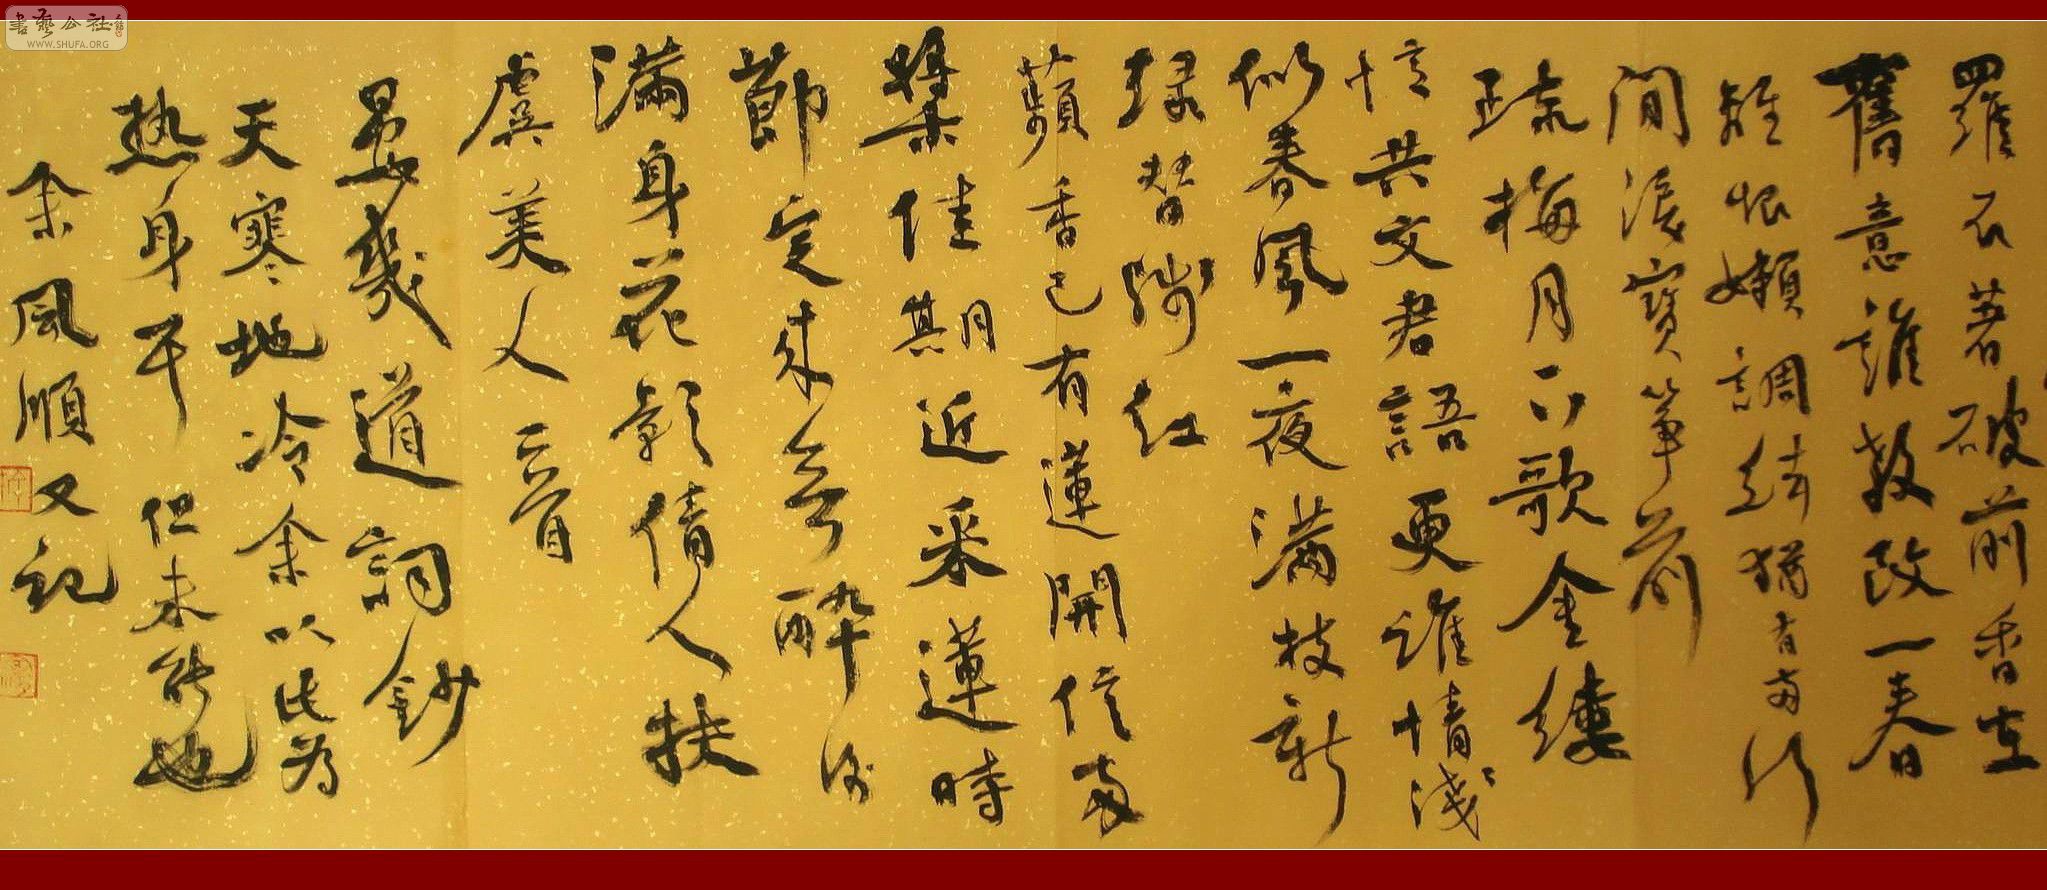 書藝公社
WWW.SHUFA.ORG
羅衣著破前香在
舊意誰教改一春
離恨懶調絃猶有兩行
閒淚寶箏前
疏梅月下歌金縷
憶共文君語更誰情淺
似春風一夜滿枝新
綠替殘紅
蘋香已有蓮開信兩
槳佳期近采蓮時
節定來無醉後
滿身花影倩人扶
虞美人首
晏幾道詞鈔
天寒地冷余以此為
热身耳但未能也
余風順又記